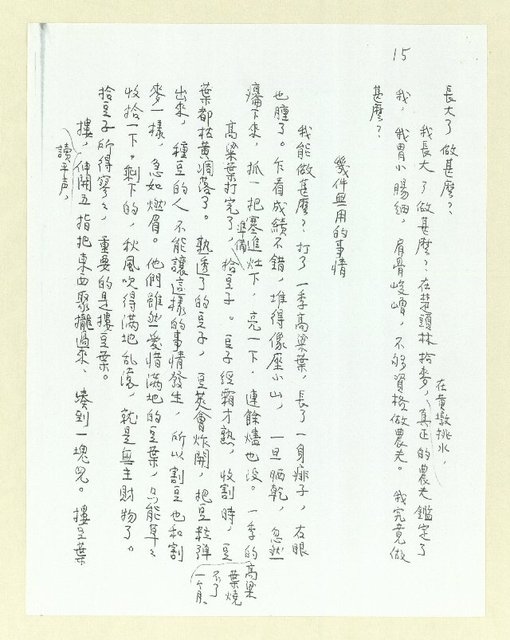 15
長大了做甚麼?
我長大了做甚麼?在楚頭林拾麥,在黃墩挑水,真正的農夫鑑定了
我,我胃小腸細,肩骨崚嶒,不够資格做農夫。我究竟做
甚麼?
幾件無用的事情
我能做甚麼?打了一季高粱葉,長了一身痱子,右眼
也腫了。乍看成績不錯,堆得像座小山,一旦晒乾,忽然
癟下來,抓一把塞進灶下,亮一下,連餘燼也沒。一季的高粱
葉燒
不了
一個月
高粱葉打完了,準備拾豆子。豆子經霜才熟,收割時,豆
葉都枯黃凋落了。熟透了的豆子,豆莢會炸開,把豆粒彈
出來,種豆的人不能讓這樣的事情發生,所以割豆也和割
麥一樣,急如燃眉。他們雖然愛惜滿地的豆葉,只能草草
收拾一下。剩下的,秋風吹得滿地乱滾,就是無主財物了。
拾豆子所得寥寥,重要的是摟豆葉。
摟,讀平声,伸開五指把東西聚攏過來,湊到一塊兒。摟豆葉